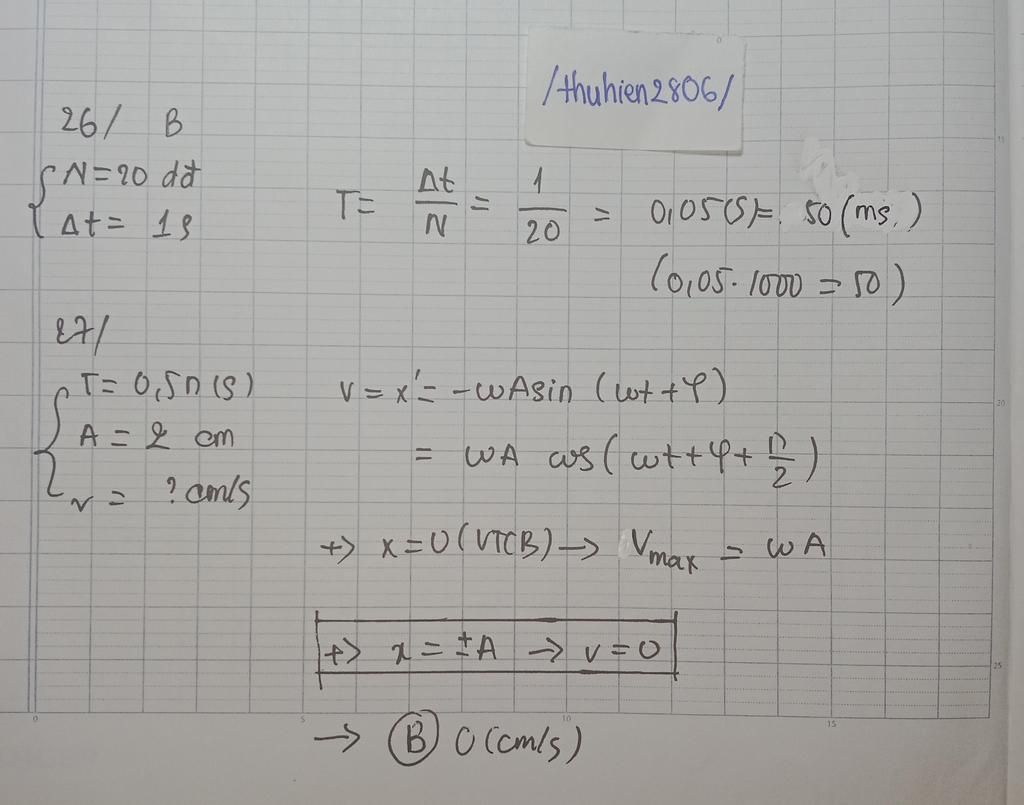 /thuhien2806/
26/ B
N=20 dđ
Δt= 1s
T= Δt/N = 1/20 = 0,05(s)= 50(ms)
(0,05. 1000 = 50)
27/
T= 0,5π(s)
A = 2 cm
v = ? cm/s
v = x' = -ωAsin (ωt+φ)
= ωA cos(ωt+φ+π/2)
+> x=0(VTCB) → Vmax = ωA
+> x = ±A → v=0
→ B 0(cm/s)